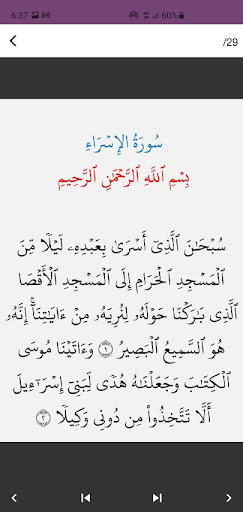 6:37 60%
/29
سُورَةُ الإِسْرَاءِ
بِسْمِ ٱللَّهِ ٱلرَّحْمَٰنِ ٱلرَّحِيمِ
سُبْحَٰنَ ٱلَّذِىٓ أَسْرَىٰ بِعَبْدِهِۦ لَيْلًا مِّنَ
ٱلْمَسْجِدِ ٱلْحَرَامِ إِلَى ٱلْمَسْجِدِ ٱلْأَقْصَا
ٱلَّذِى بَٰرَكْنَا حَوْلَهُۥ لِنُرِيَهُۥ مِنْ ءَايَٰتِنَآ ۚ إِنَّهُۥ
هُوَ ٱلسَّمِيعُ ٱلْبَصِيرُ ۝١ وَءَاتَيْنَا مُوسَى
ٱلْكِتَٰبَ وَجَعَلْنَٰهُ هُدًى لِّبَنِىٓ إِسْرَٰٓءِيلَ
أَلَّا تَتَّخِذُوا۟ مِن دُونِى وَكِيلًا ۝٢